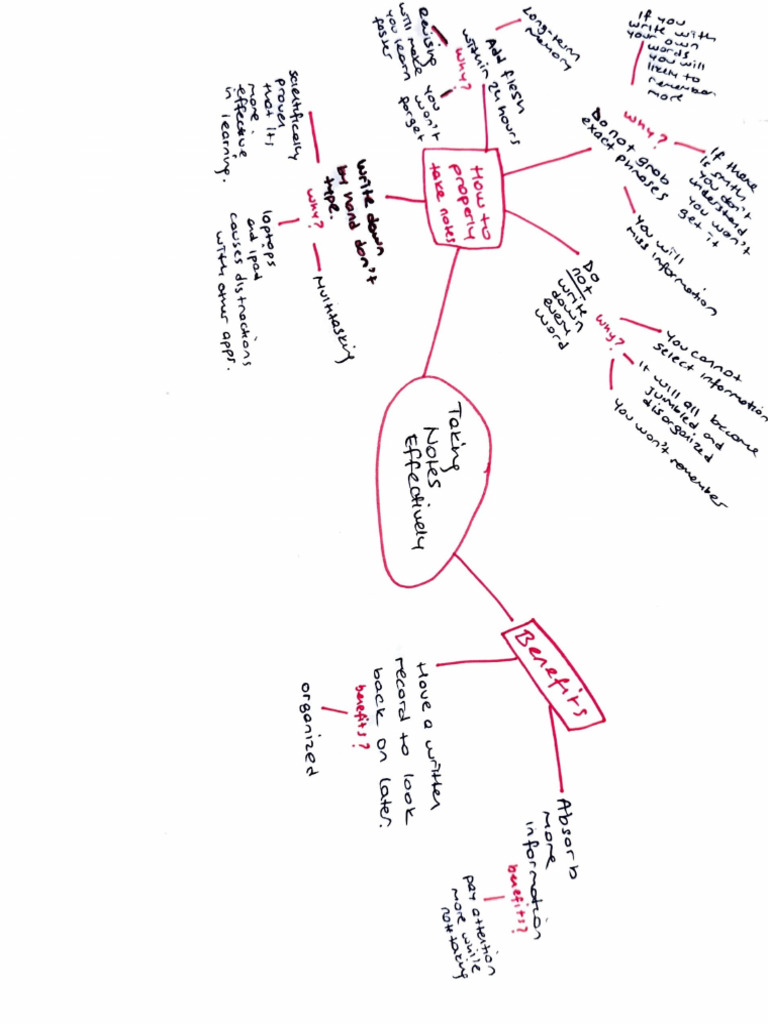 Taking
Notes
Effectively
How to
properly
take notes
Write down
by hand don't
type.
why?
scientifically
proven
that it's
more
effective
in learning.
laptops
and ipad
causes distractions
with other apps.
Multitasking
Add flesh
within 24 hours
why?
Long-term
memory
Revising
will make
you learn
faster
you won't
forget
Do not grab
exact phrases
why?
If you
write with
your own
words
you will
likely to
remember
more
If there
is smth
you don't
understand
you won't
get it
you will
miss information
Do
not
write
down
every
word
why?
you cannot
select information
it will all become
jumbled and
disorganized
you won't remember
Benefits
Have a written
record to look
back on later.
benefits?
organized
Absorb
more
information
benefits?
pay attention
more while